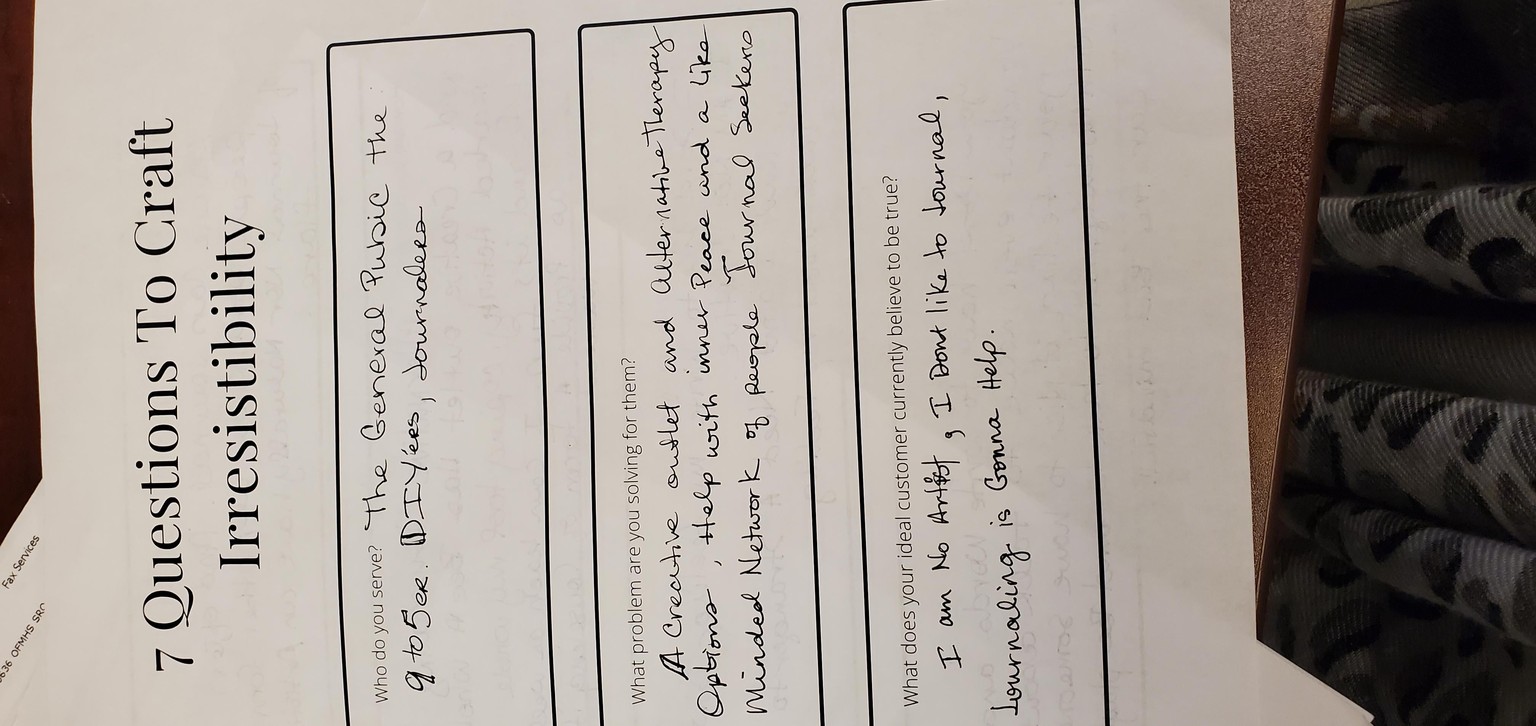 7 Questions To Craft
Irresistibility
Who do you serve? The General Pubic the
9 to 5er. DIY'ers, Journalers
What problem are you solving for them?
A Creative outlet and alternative Therapy
Options, Help with inner Peace and a like
Minded Network of people Journal Seekers
What does your ideal customer currently believe to be true?
I am No Artist, I Dont like to Journal,
Journaling is Gonna Help.
Fax Services
6636 OFMHS SRC